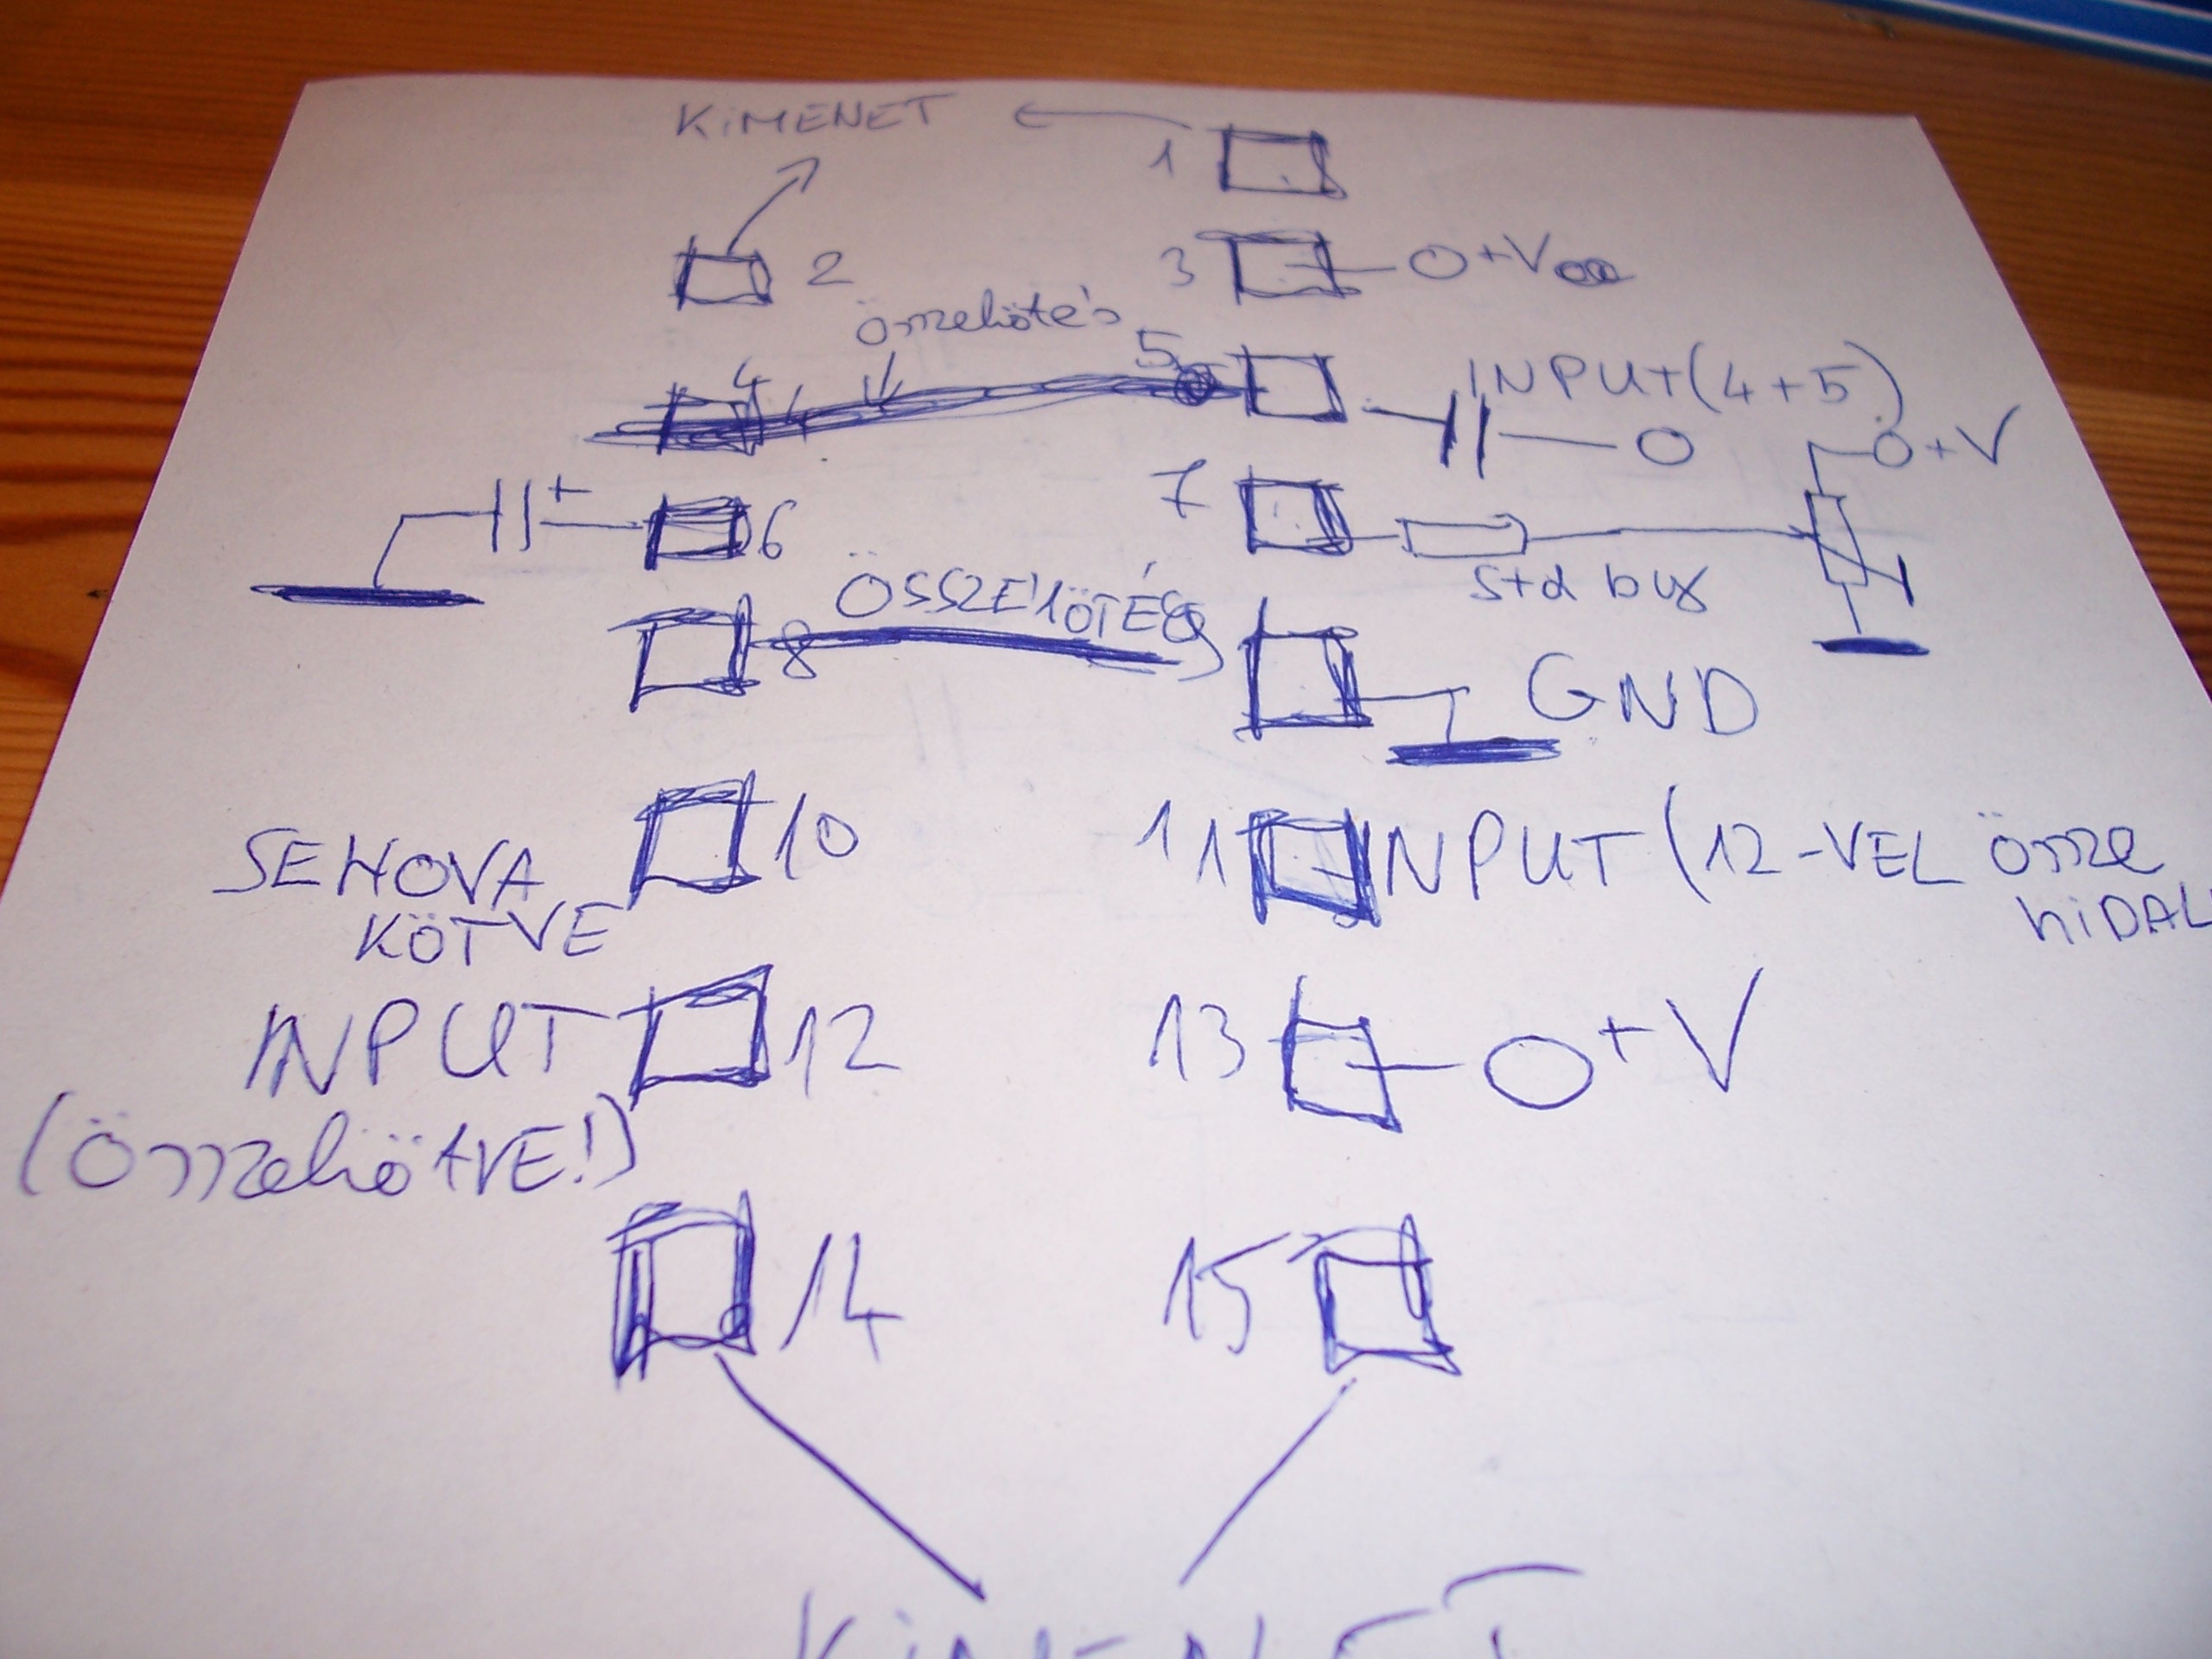 KiMENET
1
2
3
+V
összekötés
5
4
INPUT(4+5)
+V
+
6
7
ÖSSZEKÖTÉS
8
9
GND
SEHOVA
KÖTVE
10
11
INPUT (12-VEL össze
hiDAL
INPUT
12
13
+V
(ÖsszekötVE!)
14
15
KiMENET